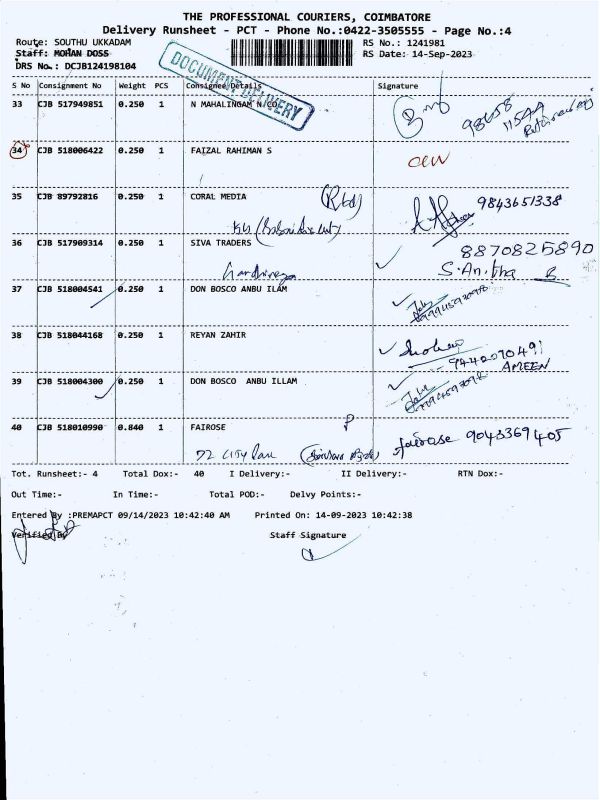 THE PROFESSIONAL COURIERS, COIMBATORE
Delivery Runsheet - PCT - Phone No.:0422-3505555 - Page No.:4
Route: SOUTHU UKKADAM
RS No.: 1241981
Staff: MOHAN DOSS
RS Date: 14-Sep-2023
DRS No.: DCJB124198104
DOCUMENT DELIVERY
S No Consignment No Weight PCS Consignee Details Signature
33 CJB 517949851 0.250 1 N MAHALINGAM N CO
98658
34 CJB 518006422 0.250 1 FAIZAL RAHIMAN S
35 CJB 89792816 0.250 1 CORAL MEDIA
9843651338
36 CJB 517909314 0.250 1 SIVA TRADERS
8870825890
S.Anitha
37 CJB 518004541 0.250 1 DON BOSCO ANBU ILAM
38 CJB 518044168 0.250 1 REYAN ZAHIR
AMEEN
39 CJB 518004300 0.250 1 DON BOSCO ANBU ILLAM
40 CJB 518010990 0.840 1 FAIROSE
fairose 9043369405
72 City
Tot. Runsheet:- 4 Total Dox:- 40 I Delivery:- II Delivery:- RTN Dox:-
Out Time:- In Time:- Total POD:- Delvy Points:-
Entered By :PREMAPCT 09/14/2023 10:42:40 AM Printed On: 14-09-2023 10:42:38
Verified By Staff Signature